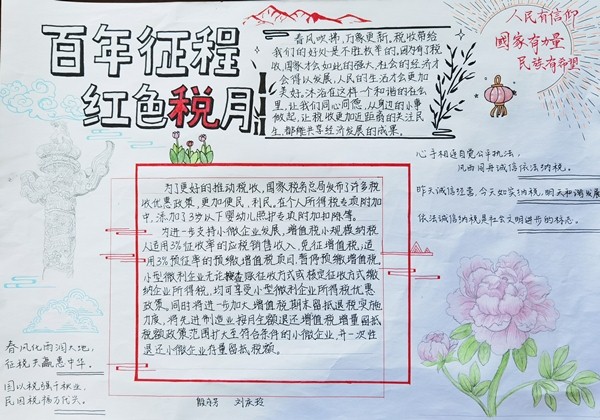 百年征程
红色税月
春风吹拂,万象更新,税收带给
我们的好处是不胜枚举的,因为有了税
收,国家才会如此的强大,社会的经济才
会得以发展,人民的生活才会更加
美好。沐浴在这样一个和谐的社会
里,让我们同心同德,从身边的小事
做起,让税收更加近距离的关注民
生,都能共享经济发展的成果。
人民有信仰
國家有力量
民族有希望
心手相连自觉公平执法,
风雨同舟诚信依法纳税。
昨天诚信经营,今天如实纳税,明天和谐发展
依法诚信纳税是社会文明进步的标志。
为了更好的推动税收,国家税务总局发布了许多税
收优惠政策,更加便民、利民。在个人所得税专项附加
中,添加了3岁以下婴幼儿照护专项附加扣除等。
为进一步支持小微企业发展,增值税小规模纳税
人适用3%征收率的应税销售收入,免征增值税;适
用3%预征率的预缴增值税项目,暂停预缴增值税。
小型微利企业无论按查账征收方式或核定征收方式缴
纳企业所得税,均可享受小型微利企业所得税优惠
政策。同时将进一步加大增值税期末留抵退税实施
力度,将先进制造业按月全额退还增值税增量留抵
税额政策范围扩大至符合条件的小微企业,并一次性
退还小微企业存量留抵税额。
春风化雨润大地,
征税共赢惠中华。
国以税强千秋业,
民因税福万代天。
刘庆玲